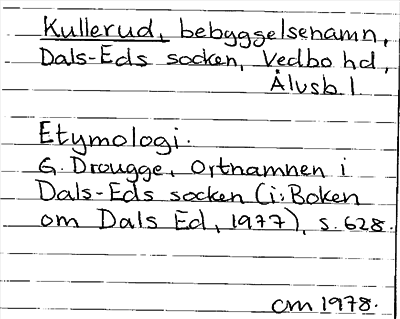 Kullerud, bebyggelsenamn,
Dals-Eds socken, Vedbo hd,
Älvsb l
Etymologi.
G. Drougge, Ortnamnen i
Dals-Eds socken (i: Boken
om Dals Ed, 1977), s. 628.
CM 1978.